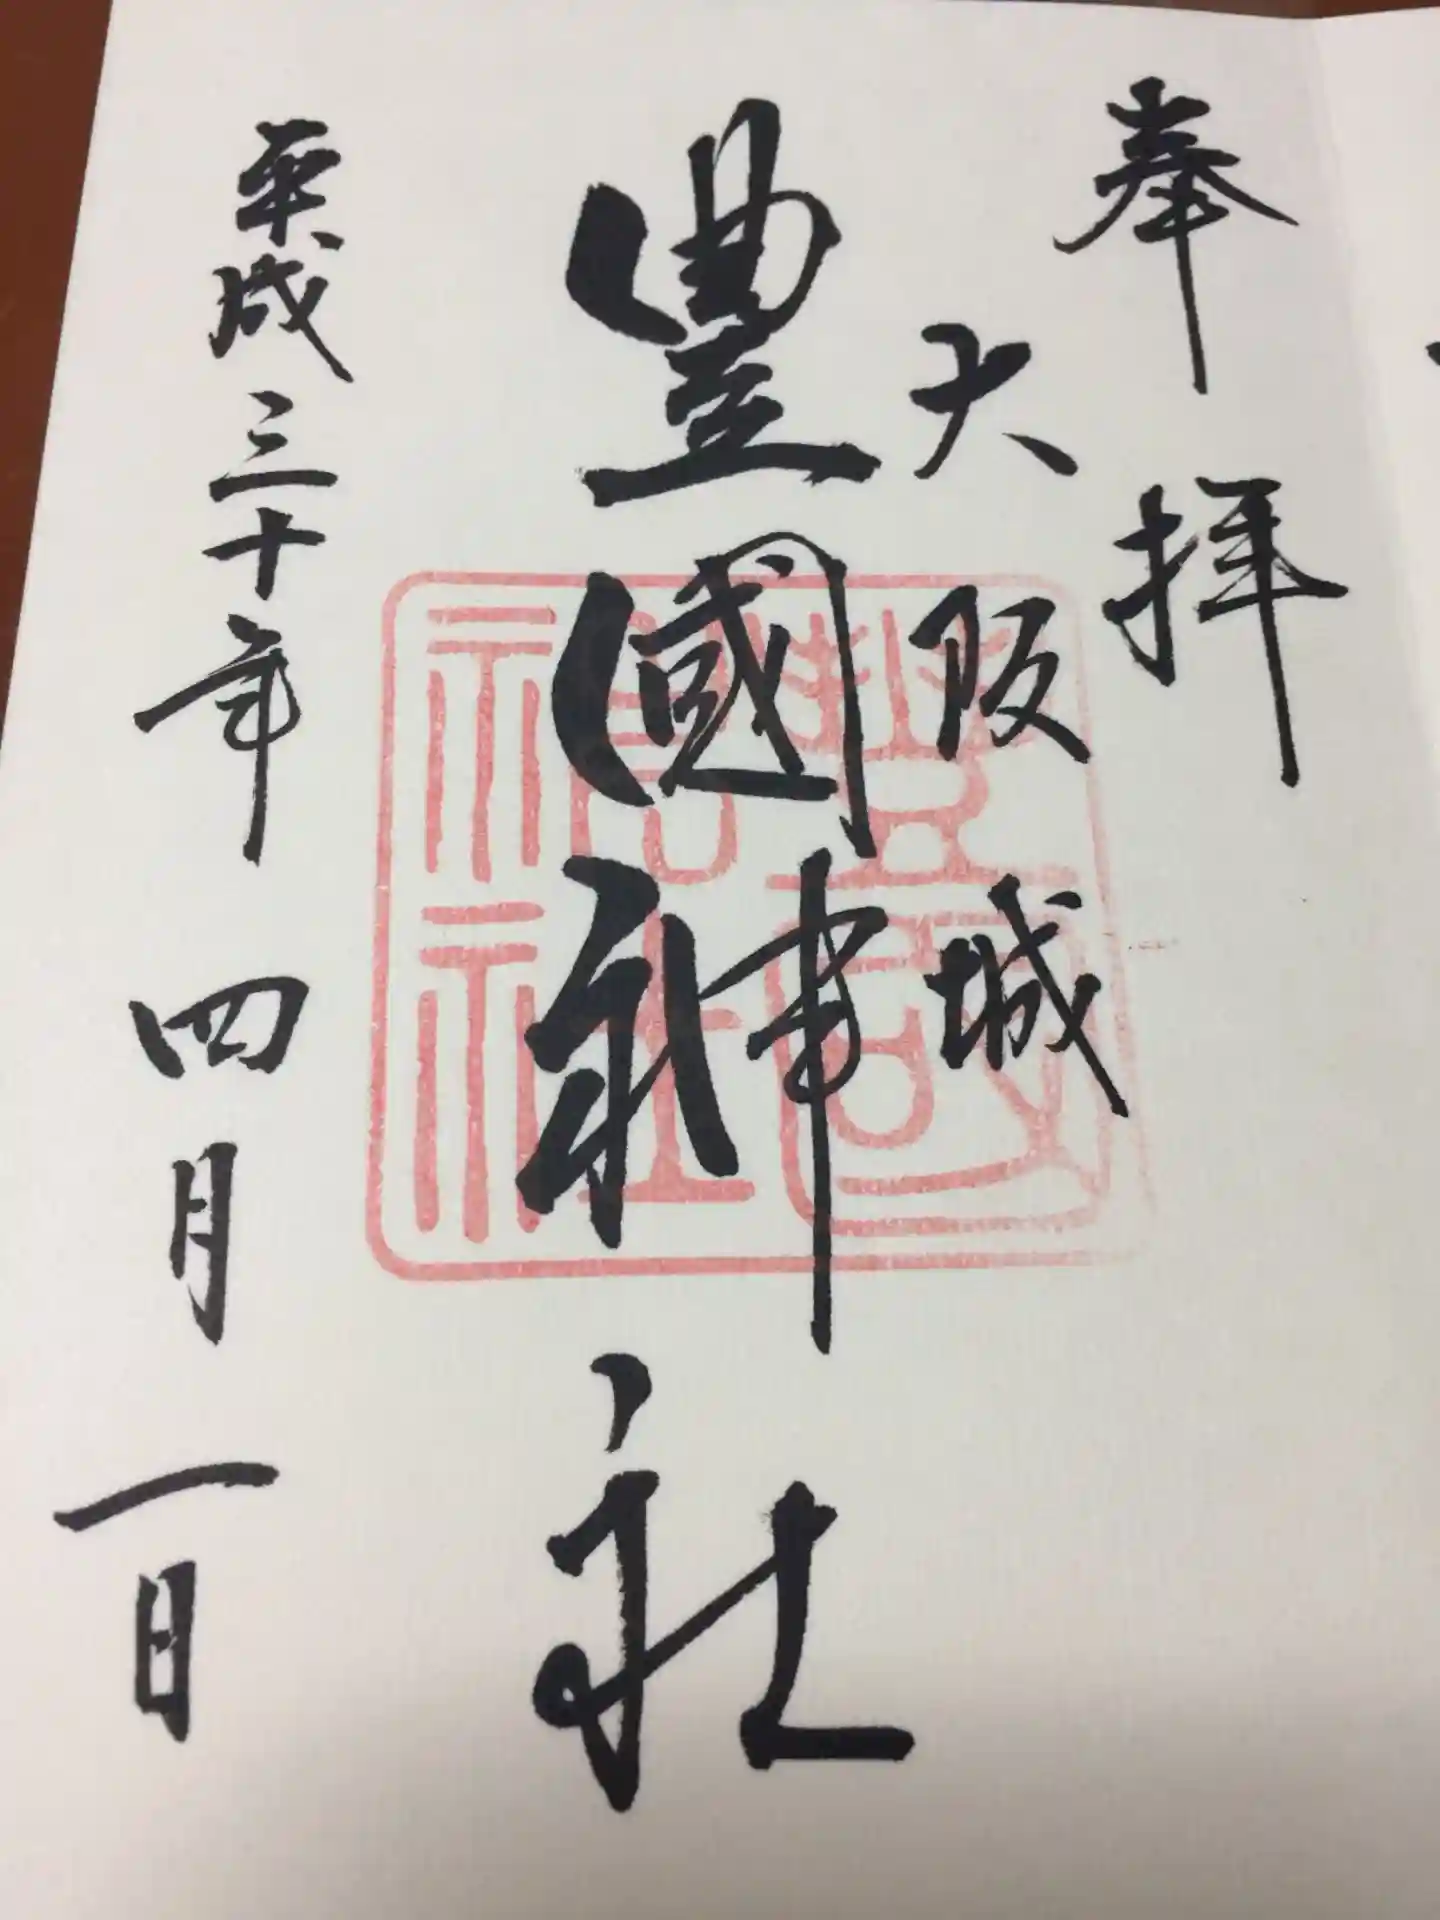 奉拝
大阪城
豊國神社
平成三十年四月一日
豊國神社